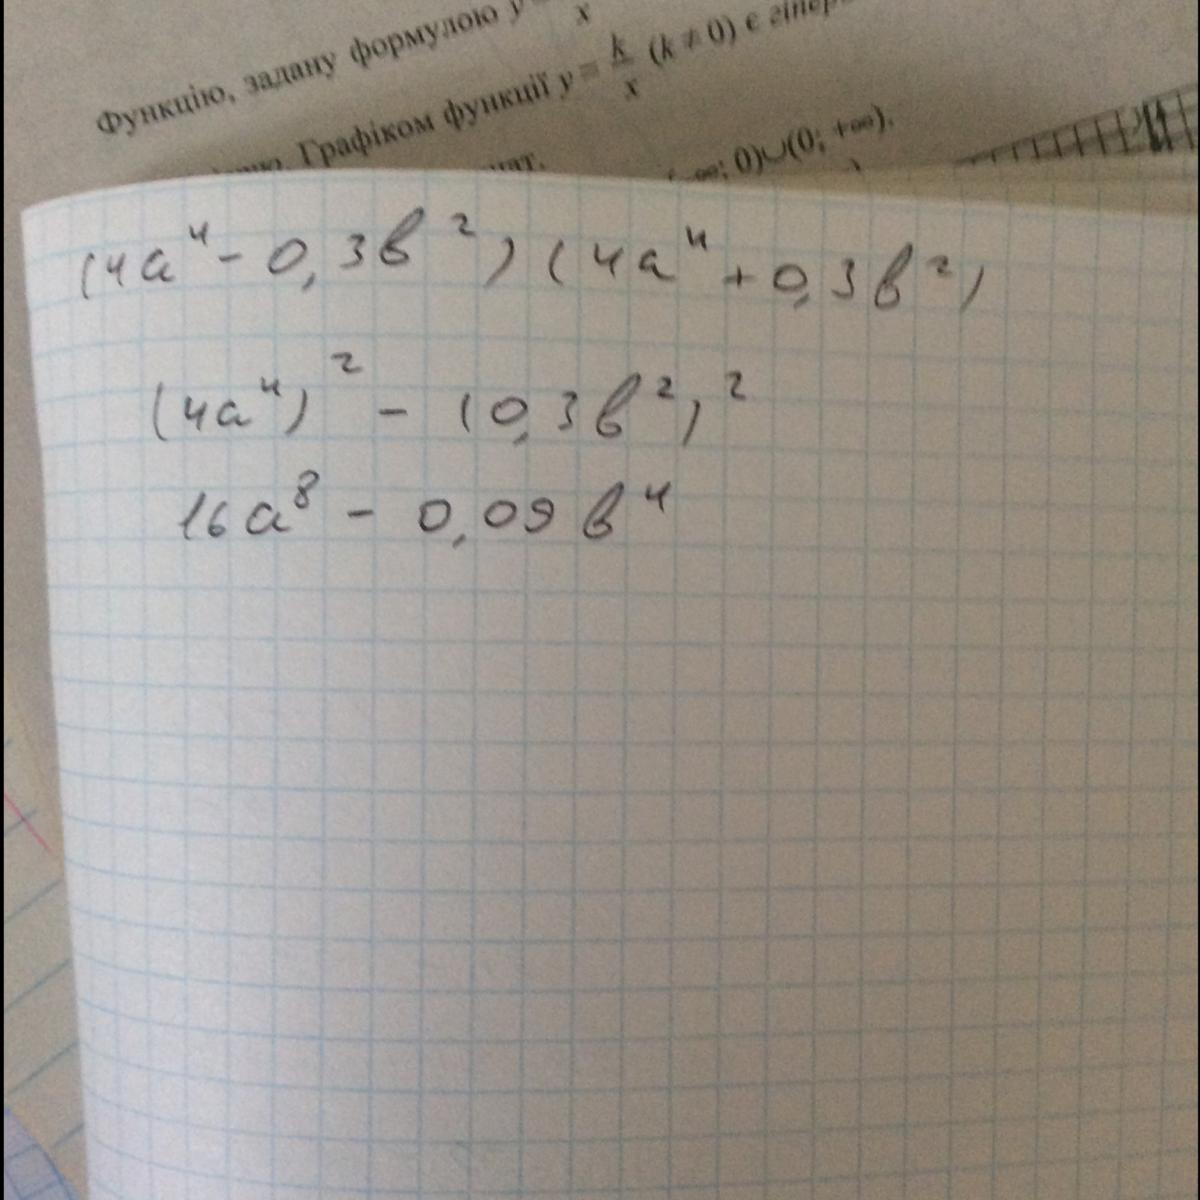 Функцію, задану формулою y =
x
Графіком функції y = k/x (k ≠ 0) є
; 0)∪(0; +∞).
(4a⁴ - 0,3в²) (4a⁴ + 0,3в²)
(4a⁴)² - (0,3в²)²
16a⁸ - 0,09в⁴